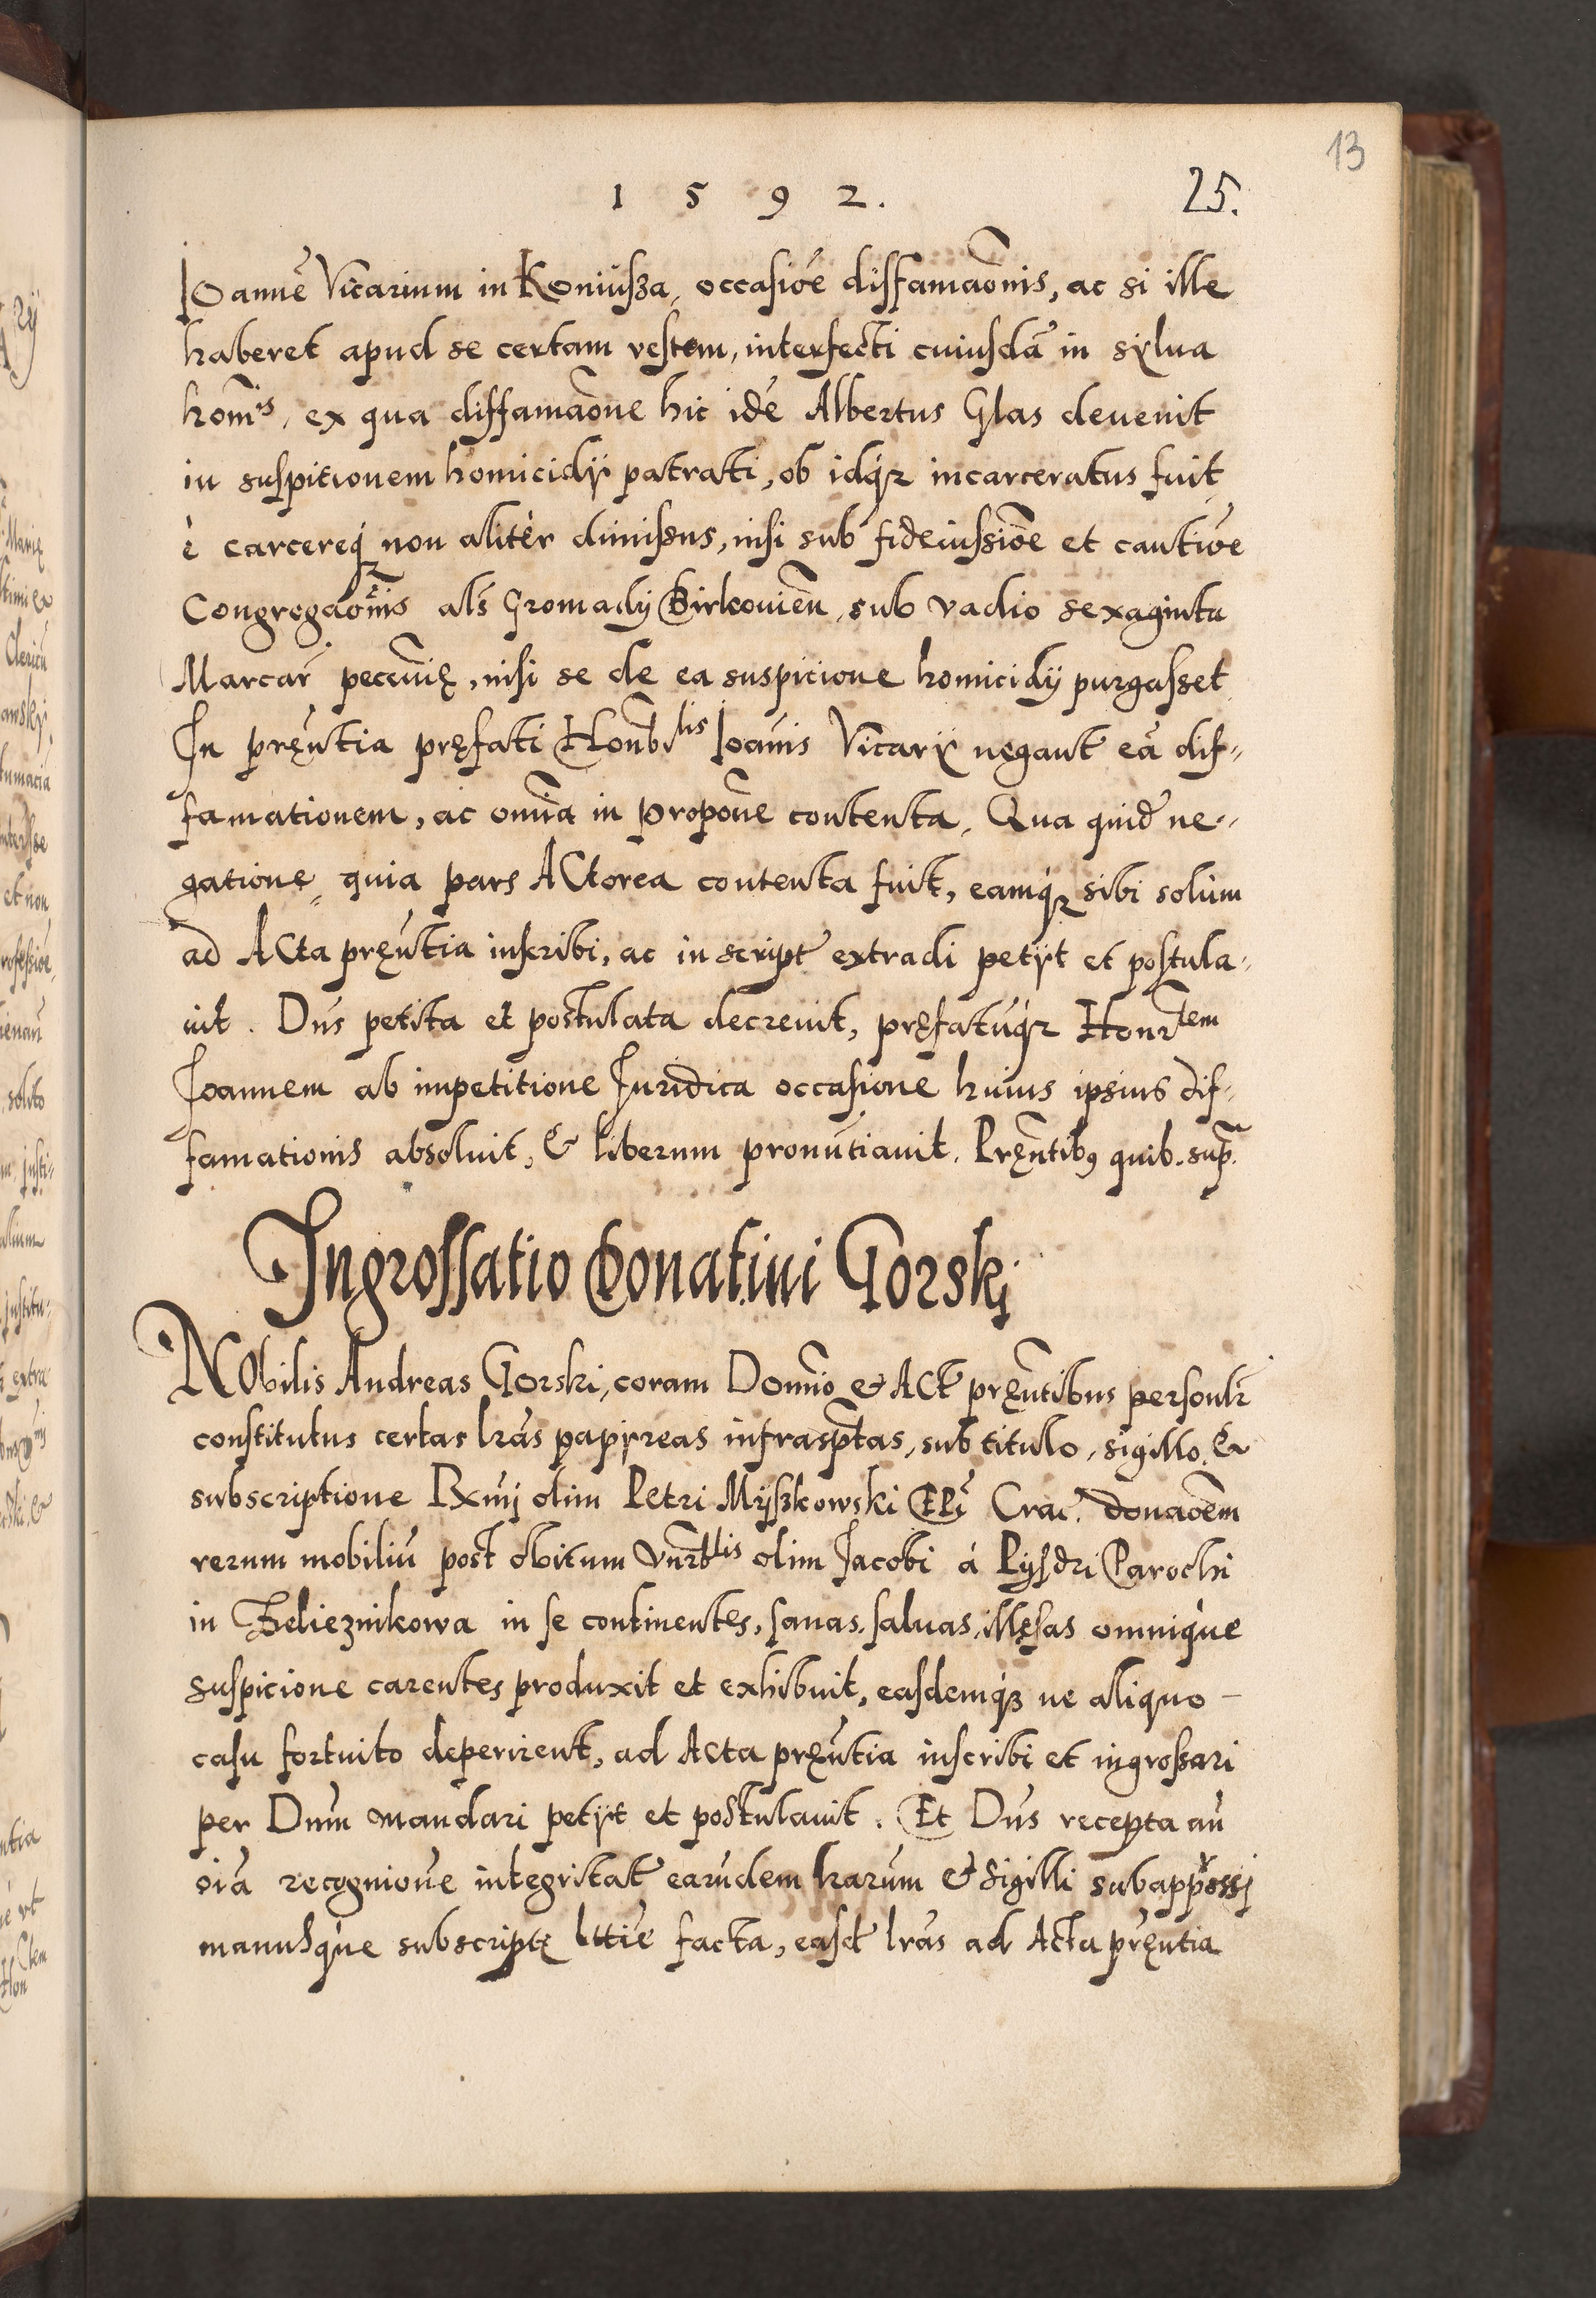 13
1 5 9 2.
25.
Ioannē Vicarium in Koniusza, occasiōe diffamaōnis, ac si ille
haberet apud se certam vestem, interfecti cuiusdā in sylua
homīs, ex qua diffamaōne hic idē Albertus Glas deuenit
in suspitionem homicidÿ patrati, ob idq́ꝫ incarceratus fuit
è carcereq́ꝫ non alitèr dimissus, nisi sub fideiussiōe et cautiōe
Congregaōnis als̄ Gromady Birkouien̄, sub vadio sexaginta
Marcar̄ pecunię, nisi se de ea suspicione homicidÿ purgasset
In pręn̄tia pręfati Honbīlis Ioānis Vicarÿ negant eā dif-
famationem, ac omnīa in propōne contenta. Qua quid̄ ne-
gatione, quia pars ACtorea contenta fuit, eamq́ꝫ sibi solùm
ad ACta pręn̄tia inscribi, ac in script̄ extradi petÿt et postula-
uit. Dn̄s petita et postulata decreuit, pręfatūq́ꝫ Honr̄tem
Ioannem ab impetitione Iuridica occasione huius ipsius dif-
famationis absoluit, & liberum pronūtiauit. Pręn̄tibꝰ quib. sup̄.
Ingrossatio Donatini Gorskj
NObilis Andreas Gorski, coram Domīo & ACt̄ pręn̄tibus personlr̄
constitutus certas lrās papyreas infrasp̄tas, sub titulo, sigillo &
subscriptione Rxmj olim Petri Myszkowski EPī Crac̄. donaōem
rerum mobiliū post obitum Vnrb̄lis olim Iacobi á Pysdri Parochi
in Zelieznikowa in se continentes, sanas, saluas, illęsas omniq́ue
suspicione carentes produxit et exhibuit, easdemq́ꝫ ne aliquo -
casu fortuito deperirent, ad Acta pręn̄tia inscribi et ingrossari
per Dn̄m mandari petÿt et postulauit. Et Dn̄s recepta an̄
oīa recogniōne integritat̄ earūdem lrarum & Sigilli subapp̄ssj
manusq́ue subscriptę lttiē facta, easd̄ lrās ad Acta pręn̄tia